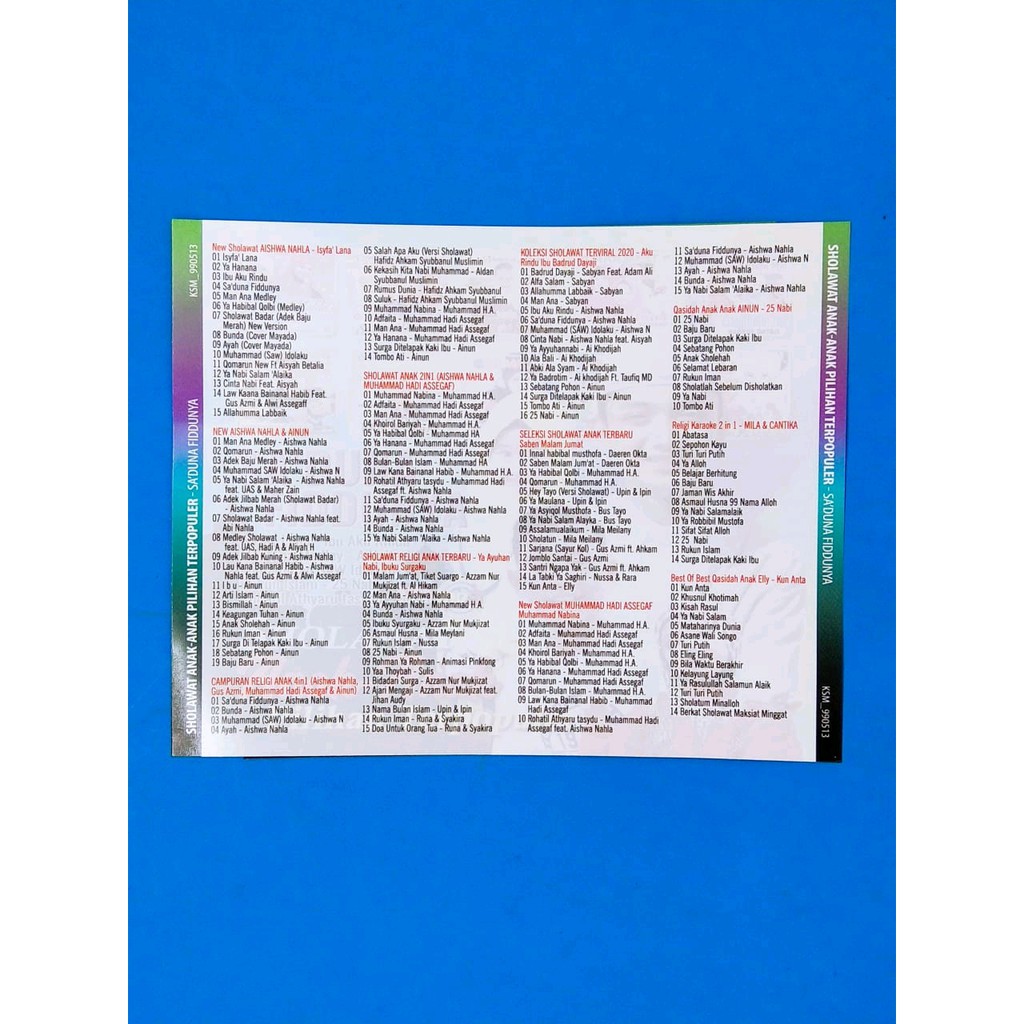 SHOLAWAT ANAK-ANAK PILIHAN TERPOPULER - SA'DUNA FIDDUNYA
KSM_990513
New Sholawat AISHWA NAHLA - Isyfa' Lana
01 Isyfa' Lana
02 Ya Hanana
03 Ibu Aku Rindu
04 Sa'duna Fiddunya
05 Man Ana Medley
06 Ya Habibal Qolbi (Medley)
07 Sholawat Badar (Adek Baju
Merah) New Version
08 Bunda (Cover Mayada)
09 Ayah (Cover Mayada)
10 Muhammad (Saw) Idolaku
11 Qomarun New Ft Aisyah Betalia
12 Ya Nabi Salam 'Alaika
13 Cinta Nabi Feat. Aisyah
14 Law Kaana Bainanal Habib Feat.
Gus Azmi & Alwi Assegaff
15 Allahumma Labbaik
NEW AISHWA NAHLA & AINUN
01 Man Ana Medley - Aishwa Nahla
02 Qomarun - Aishwa Nahla
03 Adek Baju Merah - Aishwa Nahla
04 Muhammad SAW Idolaku - Aishwa N
05 Ya Nabi Salam 'Alaika - Aishwa Nahla
feat. UAS & Maher Zain
06 Adek Jilbab Merah (Sholawat Badar)
- Aishwa Nahla
07 Sholawat Badar - Aishwa Nahla feat.
Abi Nahla
08 Medley Sholawat - Aishwa Nahla
feat. UAS, Hadi A & Aliyah H
09 Adek Jilbab Kuning - Aishwa Nahla
10 Lau Kana Bainanal Habib - Aishwa
Nahla feat. Gus Azmi & Alwi Assegaf
11 I b u - Ainun
12 Arti Islam - Ainun
13 Bismillah - Ainun
14 Keagungan Tuhan - Ainun
15 Anak Sholehah - Ainun
16 Rukun Iman - Ainun
17 Surga Di Telapak Kaki Ibu - Ainun
18 Sebatang Pohon - Ainun
19 Baju Baru - Ainun
CAMPURAN RELIGI ANAK 4in1 (Aishwa Nahla,
Gus Azmi, Muhammad Hadi Assegaf & Ainun)
01 Sa'duna Fiddunya - Aishwa Nahla
02 Bunda - Aishwa Nahla
03 Muhammad (SAW) Idolaku - Aishwa N
04 Ayah - Aishwa Nahla
05 Salah Apa Aku (Versi Sholawat)
Hafidz Ahkam Syubbanul Muslimin
06 Kekasih Kita Nabi Muhammad - Aldan
Syubbanul Muslimin
07 Rumus Dunia - Hafidz Ahkam Syubbanul
08 Suluk - Hafidz Ahkam Syubbanul Muslimin
09 Muhammad Nabina - Muhammad H.A.
10 Adfaita - Muhammad Hadi Assegaf
11 Man Ana - Muhammad Hadi Assegaf
12 Ya Hanana - Muhammad Hadi Assegaf
13 Surga Ditelapak Kaki Ibu - Ainun
14 Tombo Ati - Ainun
SHOLAWAT ANAK 2IN1 (AISHWA NAHLA &
MUHAMMAD HADI ASSEGAF)
01 Muhammad Nabina - Muhammad H.A.
02 Adfaita - Muhammad Hadi Assegaf
03 Man Ana - Muhammad Hadi Assegaf
04 Khoirol Bariyah - Muhammad H.A.
05 Ya Habibal Qolbi - Muhammad HA
06 Ya Hanana - Muhammad Hadi Assegaf
07 Qomarun - Muhammad Hadi Assegaf
08 Bulan-Bulan Islam - Muhammad HA
09 Law Kana Bainanal Habib - Muhammad H.A.
10 Rohatil Athyaru tasydu - Muhammad Hadi
Assegaf ft. Aishwa Nahla
11 Sa'duna Fiddunya - Aishwa Nahla
12 Muhammad (SAW) Idolaku - Aishwa Nahla
13 Ayah - Aishwa Nahla
14 Bunda - Aishwa Nahla
15 Ya Nabi Salam 'Alaika - Aishwa Nahla
SHOLAWAT RELIGI ANAK TERBARU - Ya Ayuhan
Nabi, Ibuku Surgaku
01 Malam Jum'at, Tiket Suargo - Azzam Nur
Mukjizat ft. Al Hikam
02 Man Ana - Aishwa Nahla
03 Ya Ayyuhan Nabi - Muhammad H.A.
04 Bunda - Aishwa Nahla
05 Ibuku Syurgaku - Azzam Nur Mukjizat
06 Asmaul Husna - Mila Meylani
07 Rukun Islam - Nussa
08 25 Nabi - Ainun
09 Rohman Ya Rohman - Animasi Pinkfong
10 Yaa Thoybah - Sulis
11 Bidadari Surga - Azzam Nur Mukjizat
12 Ajari Mengaji - Azzam Nur Mukjizat feat.
Jihan Audy
13 Nama Bulan Islam - Upin & Ipin
14 Rukun Iman - Runa & Syakira
15 Doa Untuk Orang Tua - Runa & Syakira
KOLEKSI SHOLAWAT TERVIRAL 2020 - Aku
Rindu Ibu Badrud Dayaji
01 Badrud Dayaji - Sabyan Feat. Adam Ali
02 Alfa Salam - Sabyan
03 Allahumma Labbaik - Sabyan
04 Man Ana - Sabyan
05 Ibu Aku Rindu - Aishwa Nahla
06 Sa'duna Fiddunya - Aishwa Nahla
07 Muhammad (SAW) Idolaku - Aishwa N
08 Cinta Nabi - Aishwa Nahla feat. Aisyah
09 Ya Ayyuhannabi - Ai Khodijah
10 Ala Bali - Ai Khodijah
11 Abki Ala Syam - Ai Khodijah
12 Ya Badrotim - Ai khodijah Ft. Taufiq MD
13 Sebatang Pohon - Ainun
14 Surga Ditelapak Kaki Ibu - Ainun
15 Tombo Ati - Ainun
16 25 Nabi - Ainun
SELEKSI SHOLAWAT ANAK TERBARU
Saben Malam Jumat
01 Innal habibal musthofa - Daeren Okta
02 Saben Malam Jum'at - Daeren Okta
03 Ya Habibal Qolbi - Muhammad H.A.
04 Qomarun - Muhammad H.A.
05 Hey Tayo (Versi Sholawat) - Upin & Ipin
06 Ya Maulana - Upin & Ipin
07 Ya Asyiqol Musthofa - Bus Tayo
08 Ya Nabi Salam Alayka - Bus Tayo
09 Assalamualaikum - Mila Meilany
10 Sholatun - Mila Meilany
11 Sarjana (Sayur Kol) - Gus Azmi ft. Ahkam
12 Jomblo Santai - Gus Azmi
13 Santri Ngapa Yak - Gus Azmi ft. Ahkam
14 La Tabki Ya Saghiri - Nussa & Rara
15 Kun Anta - Elly
New Sholawat MUHAMMAD HADI ASSEGAF
Muhammad Nabina
01 Muhammad Nabina - Muhammad H.A.
02 Adfaita - Muhammad Hadi Assegaf
03 Man Ana - Muhammad Hadi Assegaf
04 Khoirol Bariyah - Muhammad H.A.
05 Ya Habibal Qolbi - Muhammad H.A.
06 Ya Hanana - Muhammad Hadi Assegaf
07 Qomarun - Muhammad Hadi Assegaf
08 Bulan-Bulan Islam - Muhammad H.A.
09 Law Kana Bainanal Habib - Muhammad
Hadi Assegaf
10 Rohatil Athyaru tasydu - Muhammad Hadi
Assegaf feat. Aishwa Nahla
11 Sa'duna Fiddunya - Aishwa Nahla
12 Muhammad (SAW) Idolaku - Aishwa N
13 Ayah - Aishwa Nahla
14 Bunda - Aishwa Nahla
15 Ya Nabi Salam 'Alaika - Aishwa Nahla
Qasidah Anak Anak AINUN - 25 Nabi
01 25 Nabi
02 Baju Baru
03 Surga Ditelapak Kaki Ibu
04 Sebatang Pohon
05 Anak Sholehah
06 Selamat Lebaran
07 Rukun Iman
08 Sholatlah Sebelum Disholatkan
09 Ya Nabi
10 Tombo Ati
Religi Karaoke 2 in 1 - MILA & CANTIKA
01 Abatasa
02 Sepohon Kayu
03 Turi Turi Putih
04 Ya Alloh
05 Belajar Berhitung
06 Baju Baru
07 Jaman Wis Akhir
08 Asmaul Husna 99 Nama Alloh
09 Ya Nabi Salamalaik
10 Ya Robbibil Mustofa
11 Sifat Sifat Alloh
12 25 Nabi
13 Rukun Islam
14 Surga Ditelapak Kaki Ibu
Best Of Best Qasidah Anak Elly - Kun Anta
01 Kun Anta
02 Khusnul Khotimah
03 Kisah Rasul
04 Ya Nabi Salam
05 Mataharinya Dunia
06 Asane Wali Songo
07 Turi Putih
08 Eling Eling
09 Bila Waktu Berakhir
10 Kelayung Layung
11 Ya Rasulullah Salamun Alaik
12 Turi Turi Putih
13 Sholatum Minalloh
14 Berkat Sholawat Maksiat Minggat
SHOLAWAT ANAK-ANAK PILIHAN TERPOPULER - SA'DUNA FIDDUNYA
KSM_990513